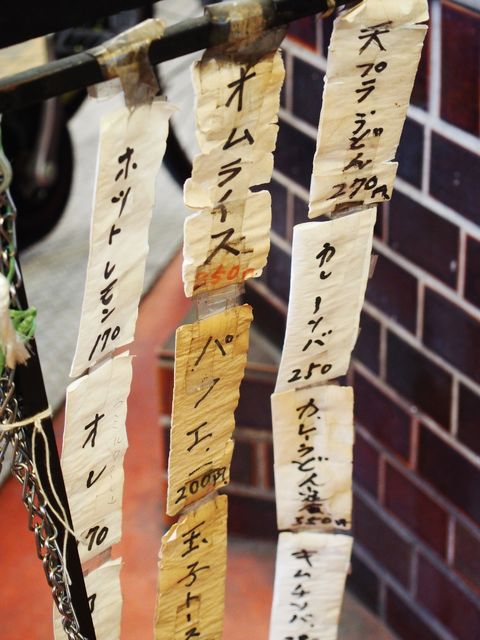 天プラうどん
270円
カレーソバ
250
カレーうどん
350円
キムチソバ
オムライス
350円
パフェ
200円
玉子トース
ホットレモン
170
オレ
70